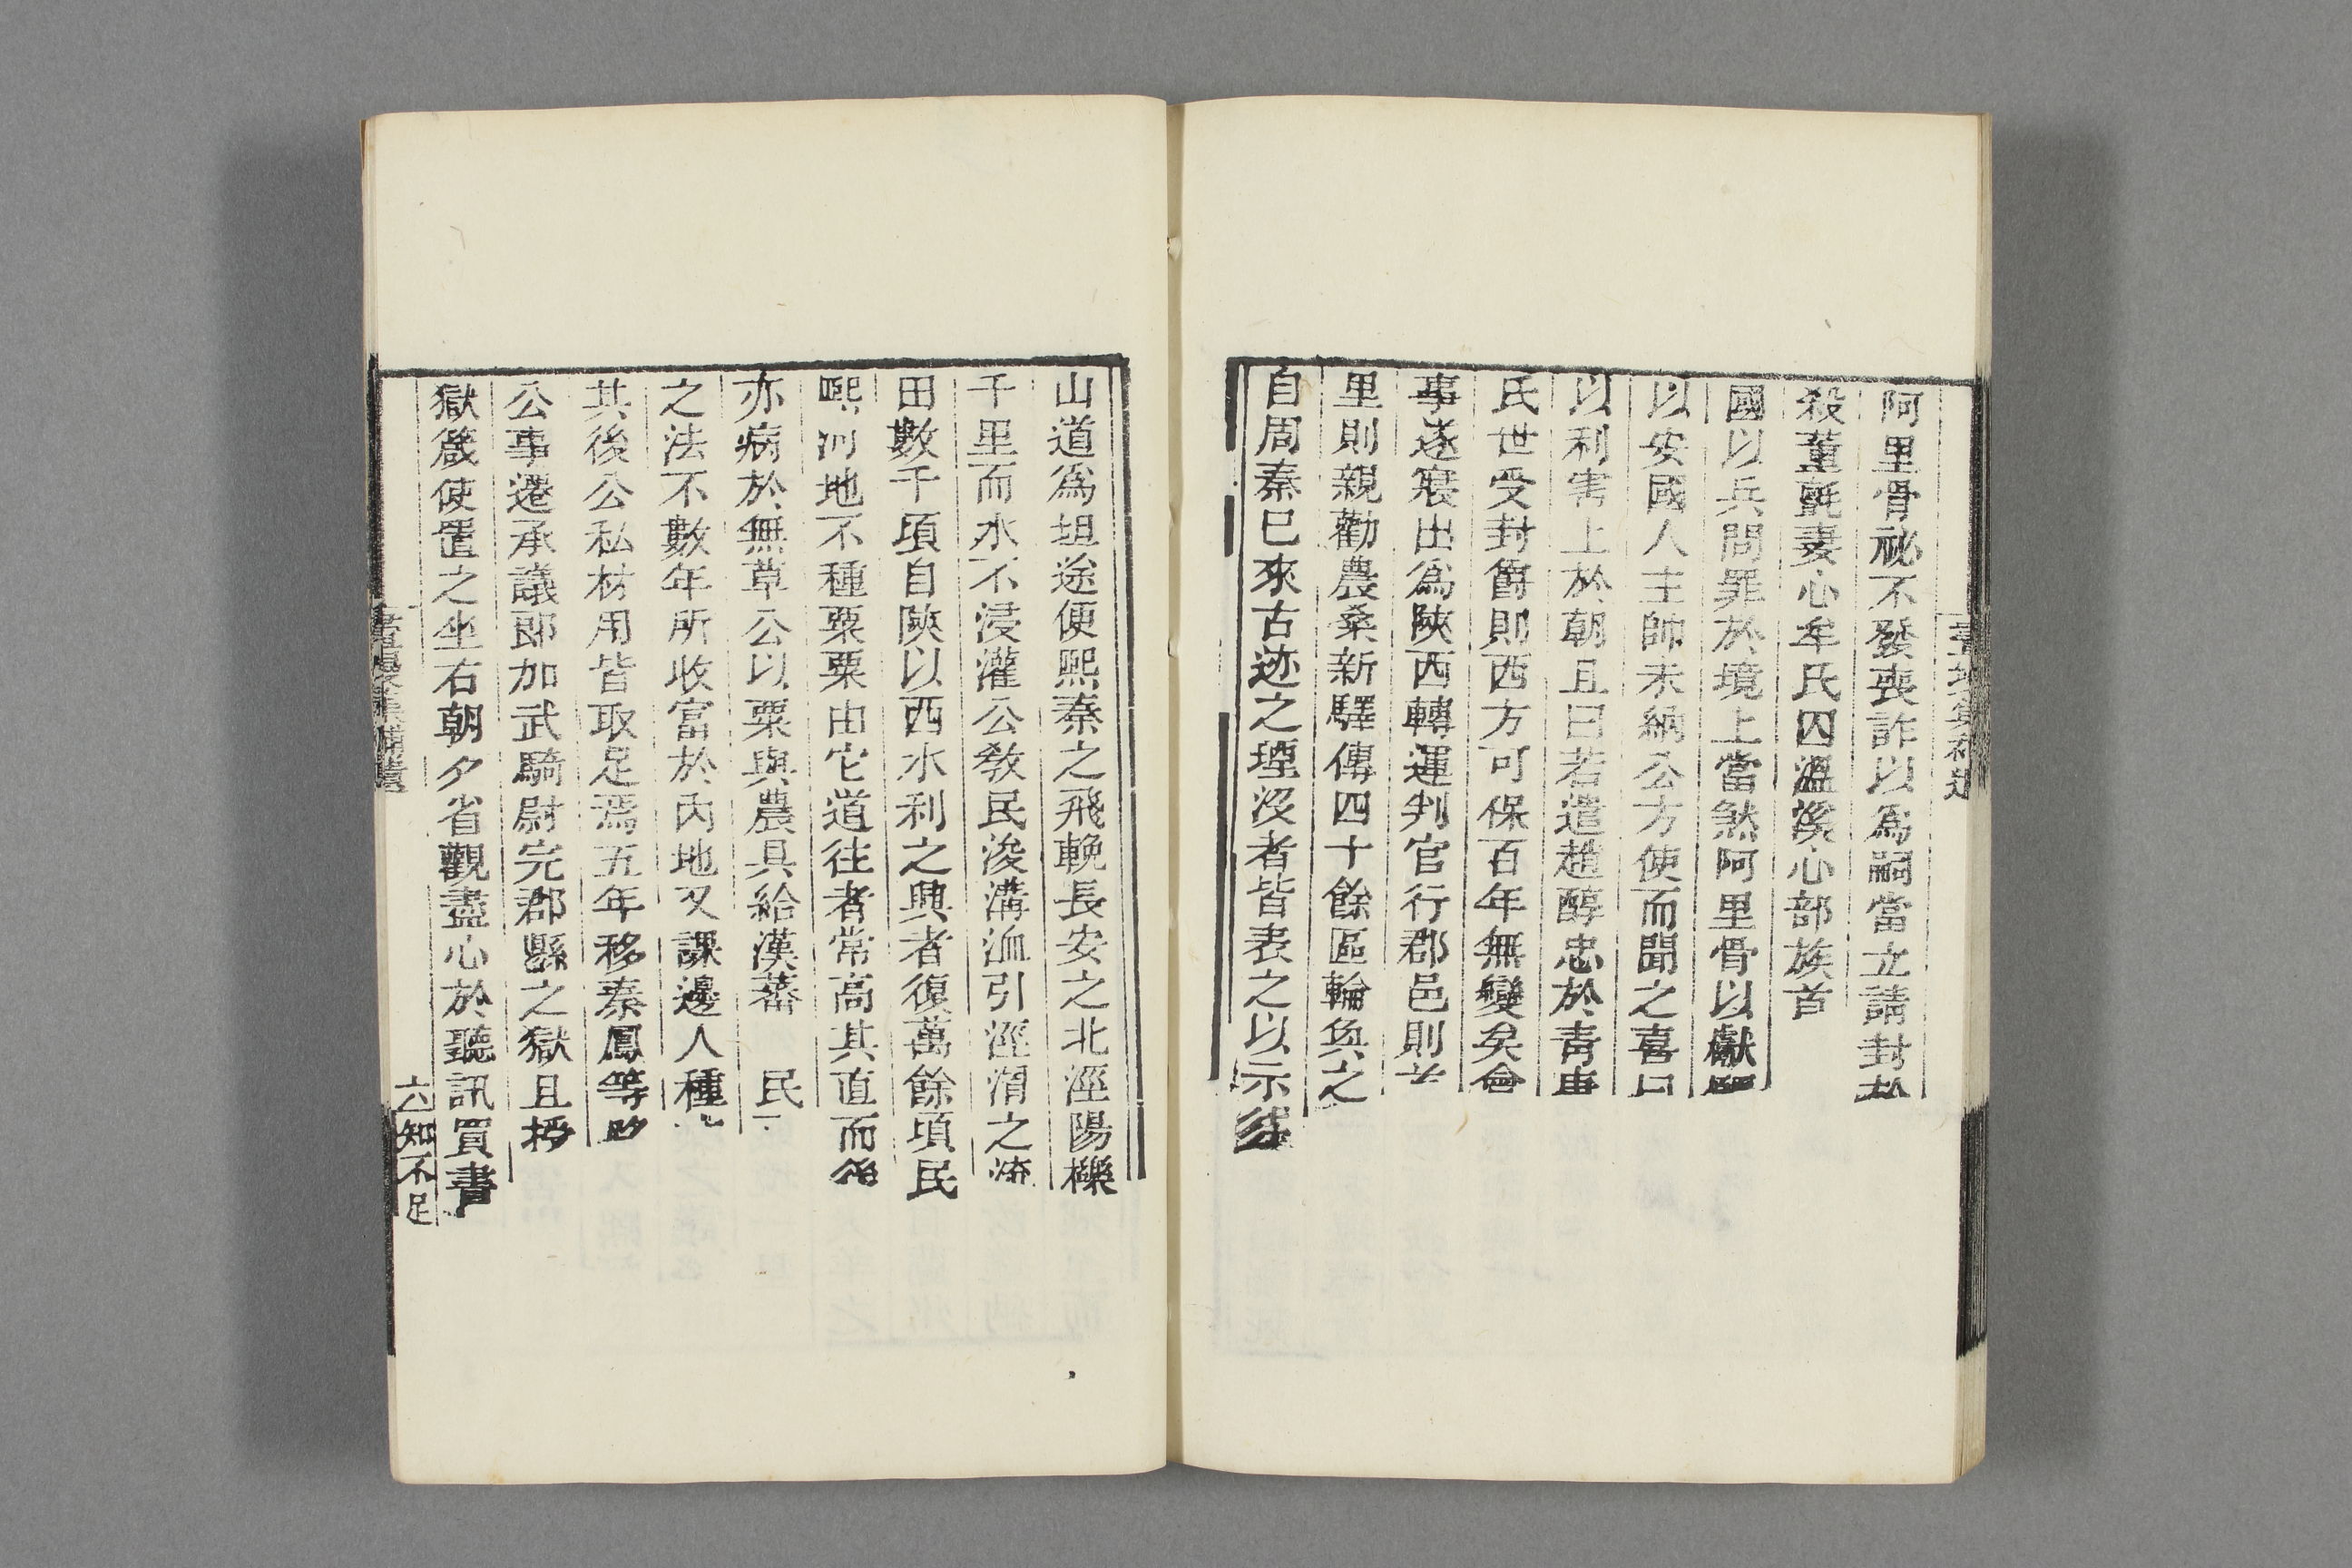 阿里骨祕不發喪詐以爲嗣當立請封於
殺董氈妻心牟氏囚溫溪心部族首
國以兵問罪於境上當煞阿里骨以獻
以安國人主帥未納公方使而聞之喜曰
以利害上於朝且曰若遣趙醇忠於靑唐
氏世受封爵則西方可保百年無變矣會
事遂寢出爲陝西轉運判官行郡邑則
里則親勸農桑新驛傳四十餘區輪奐之
自周秦已來古迹之堙沒者皆表之以示後
山道爲坦途便熙秦之飛輓長安之北涇陽櫟
千里而水不浸灌公敎民浚溝洫引涇渭之流
田數千頃自陝以西水利之興者復萬餘頃民
熙河地不種粟粟由它道往者常高其直而後
亦病於無草公以粟與農具給漢蕃 民
之法不數年所收富於內地又課邊人種
其後公私材用皆取足焉五年移秦鳳等
公事遷承議郎加武騎尉完郡縣之獄且
獄箴使置之坐右朝夕省觀盡心於聽訊買書
畫墁集補遺
六 知不足